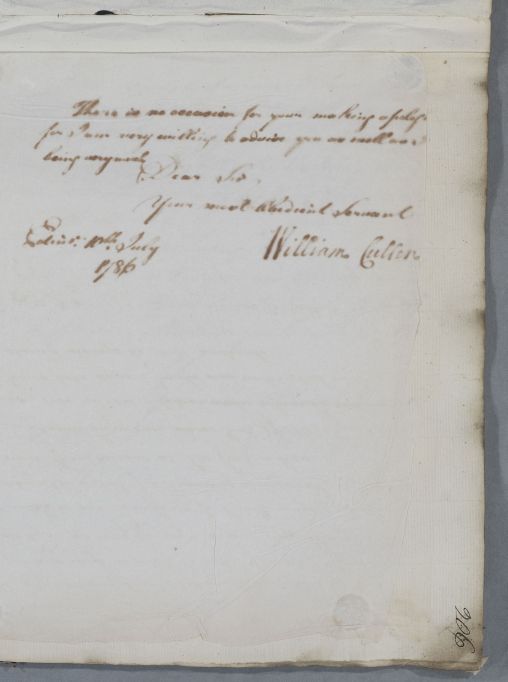 There is no occasion for your making apology
for I am very willing to advise you as well as I
being very much
Dear Sir,
Your most obedient Servant
William Cullen
Edinr. 10th July
1786